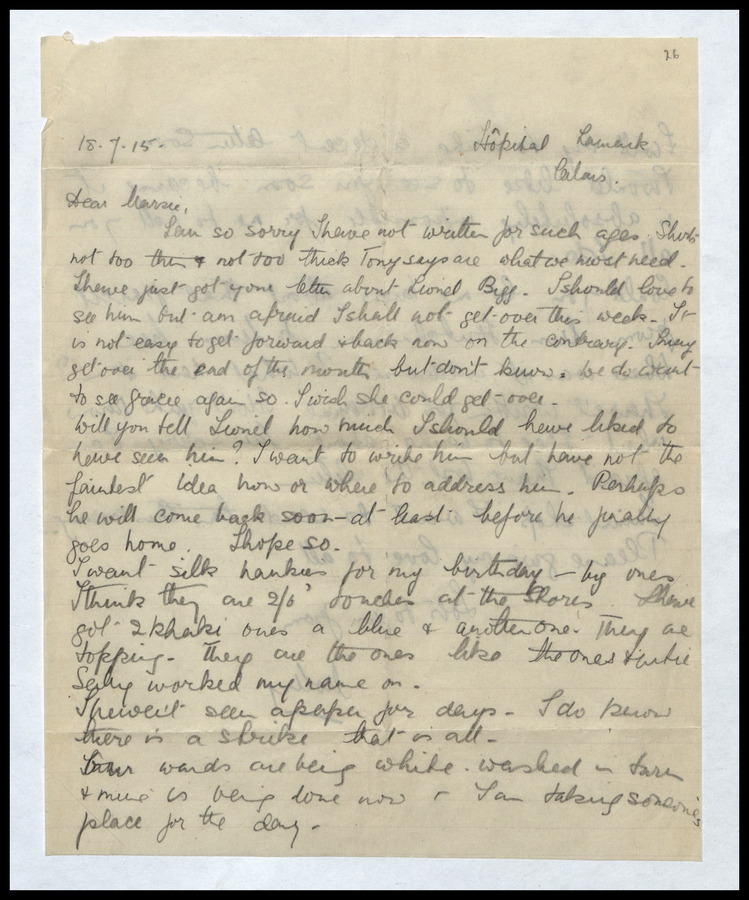 26
18.7.15. Hôpital Lamark
Calais.
Dear Marsie,
I am so sorry I have not written for such ages. Shirts
not too thin & not too thick Tony says are what we most need.
I have just got your letter about Lionel Bigg. I should love to
see him but am afraid I shall not get over this week. It
is not easy to get forward & back now on the contrary. I may
get over the end of this month but don't know. We do want
to see Gracie again so. I wish she could get over.
Will you tell Lionel how much I should have liked to
have seen him? I want to write him but have not the
faintest idea how or where to address him. Perhaps
he will come back soon - at least before he finally
goes home. I hope so.
I want silk hankies for my birthday - big ones
I think they are 2/6 at the Stores. I have
got 2 khaki ones a blue & another one. They are
topping. They are the ones like the ones
worked my name on.
I haven't seen a paper for days - I do know
there is a strike that is all -
wards are being white-washed in turn
& mine is being done now & I am taking someone's
place for the day.